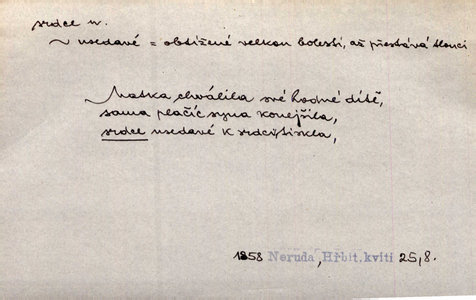 srdce n.
~ usedavé = obtížené velkou bolestí, až přestává tlouci
Matka chválila své hodné dítě,
sama plačíc syna konejšila,
srdce usedavé k srdci tiskla,
1858 Neruda, Hřbit. kvítí 25, 8.